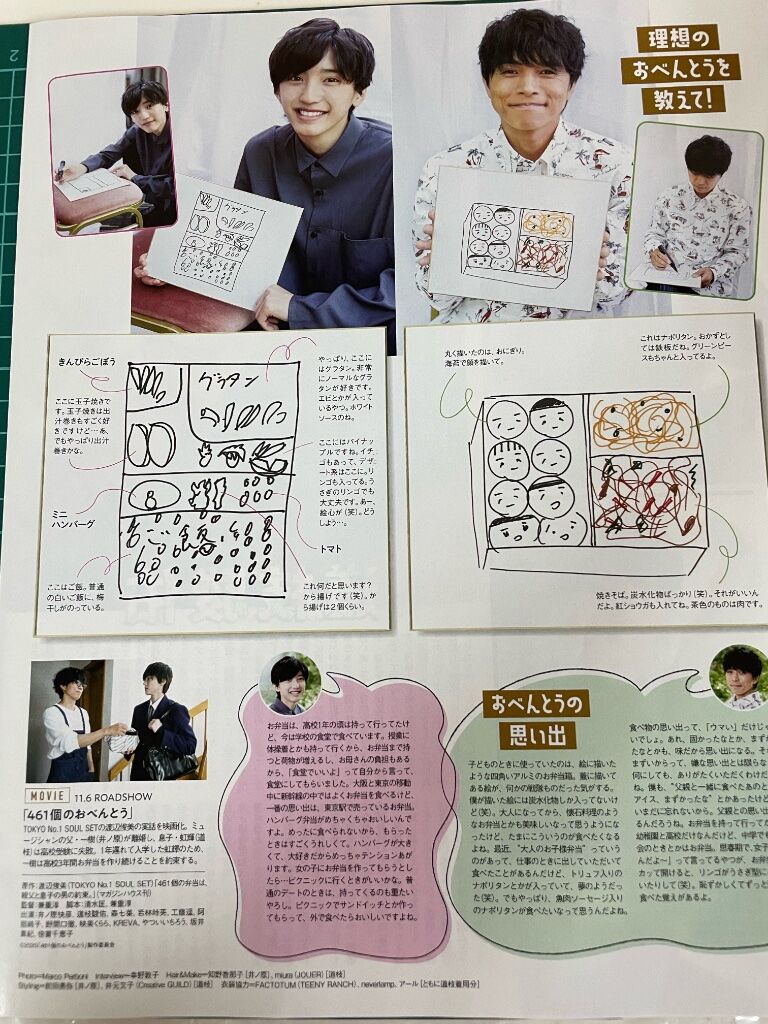 理想の
おべんとうを
教えて!
グラタン
きんぴらごぼう
ここに玉子焼きで
す。玉子焼きは出
汁巻きもすごく好
きですけど…あ、
でもやっぱり出汁
巻きかな。
ミニ
ハンバーグ
ここはご飯。普通
の白いご飯に、梅
干しがのっている。
グラタン
やっぱり、ここに
はグラタン。非常
にノーマルなグラ
タンが好きです。
エビとかが入って
いるやつ。ホワイト
ソースのね。
ここにはパイナッ
プルですね。イチ
ゴもあって、デザ
ート系はここに。リ
ンゴも入ってる。う
さぎのリンゴでも
大丈夫です。あー、
絵心が(笑)。どう
しよう…。
トマト
これ何だと思います?
から揚げです(笑)。か
ら揚げは2個くらい。
丸く描いたのは、おにぎり。
海苔で顔を描いて。
これはナポリタン。おかずとし
ては鉄板だね。グリーンピー
スもちゃんと入ってるよ。
焼きそば。炭水化物ばっかり(笑)。それがいいん
だよ。紅ショウガも入れてね。茶色のものは肉です。
MOVIE 11.6 ROADSHOW
「461個のおべんとう」
TOKYO No.1 SOUL SETの渡辺俊美の実話を映画化。ミュー
ジシャンの父・一樹(井ノ原)が離婚し、息子・虹輝(道
枝)は高校受験に失敗。1年遅れて入学した虹輝のため、
一樹は高校3年間お弁当を作り続けることを約束する。
原作:渡辺俊美(TOKYO No.1 SOUL SET)「461個の弁当は、
親父と息子の男の約束。」(マガジンハウス刊)
監督:兼重淳 脚本:清水匡、兼重淳
出演:井ノ原快彦、道枝駿佑、森七菜、若林時英、工藤遥、阿
部純子、野間口徹、映美くらら、KREVA、やついいちろう、坂井
真紀、倍賞千恵子
©2020「461個のおべんとう」製作委員会
お弁当は、高校1年の頃は持って行ってたけ
ど、今は学校の食堂で食べています。授業に
体操着とかも持って行くから、お弁当まで持
つと荷物が増えるし、お母さんの負担もある
から、「食堂でいいよ」って自分から言って、
食堂にしてもらいました。大阪と東京の移動
中に新幹線の中ではよくお弁当を食べるけど、
一番の思い出は、東京駅で売っているお弁当。
ハンバーグ弁当がめちゃくちゃおいしいんで
すよ。めったに食べられないから、もらった
ときはすごくうれしくて。ハンバーグが大き
くて、大好きだからめっちゃテンションあが
ります。女の子にお弁当を作ってもらうとし
たら…ピクニックに行くときがいいかな。普
通のデートのときは、持ってくるのも重たい
やろし。ピクニックでサンドイッチとか作っ
てもらって、外で食べたらおいしいですよね。
おべんとうの
思い出
子どものときに使っていたのは、絵に描いた
ような四角いアルミのお弁当箱。蓋に描いて
ある絵が、何かの戦隊ものだった気がする。
僕が描いた絵には炭水化物しか入ってないけ
ど(笑)。大人になってから、懐石料理のよう
なお弁当とかも美味しいなって思うようにな
ったけど、たまにこういうのが食べたくなる
よね。最近、“大人のお子様弁当”っていう
のがあって、仕事のときに出していただいて
食べたことがあるんだけど、トリュフ入りの
ナポリタンとかが入っていて、夢のようだっ
た(笑)。でもやっぱり、魚肉ソーセージ入り
のナポリタンが食べたいなって思うんだよね。
食べ物の思い出って、「ウマい」だけじゃ
いでしょ。あれ、固かったなとか、まず
たなとかも、味だから思い出になる。そ
まずいからって、嫌な思い出とは限らな
何にしても、ありがたくいただくわけだ
ね。僕も、“父親と一緒に食べたあのと
アイス、まずかったな”とかあったけど
いまだに忘れないから。父親との思い出
るんだろうね。お弁当を持って行く
幼稚園と高校だけなんだけど、中学でも
会のときとかはお弁当。思春期で、女子
んだよ〜」って言ってるやつが、お弁
カッて開けると、リンゴがうさぎ型に
いたりして(笑)。恥ずかしくてずっと
食べた覚えがあるよ。
Photo=Marco Perboni Interview=幸野敦子 Hair&Make=知野香那子[井ノ原]、miura (JOUER)[道枝]
Styling=前田勇弥[井ノ原]、井元文子(Creative GUILD)[道枝] 衣装協力=FACTOTUM (TEENY RANCH)、neverlamp、アール[ともに道枝着用分]